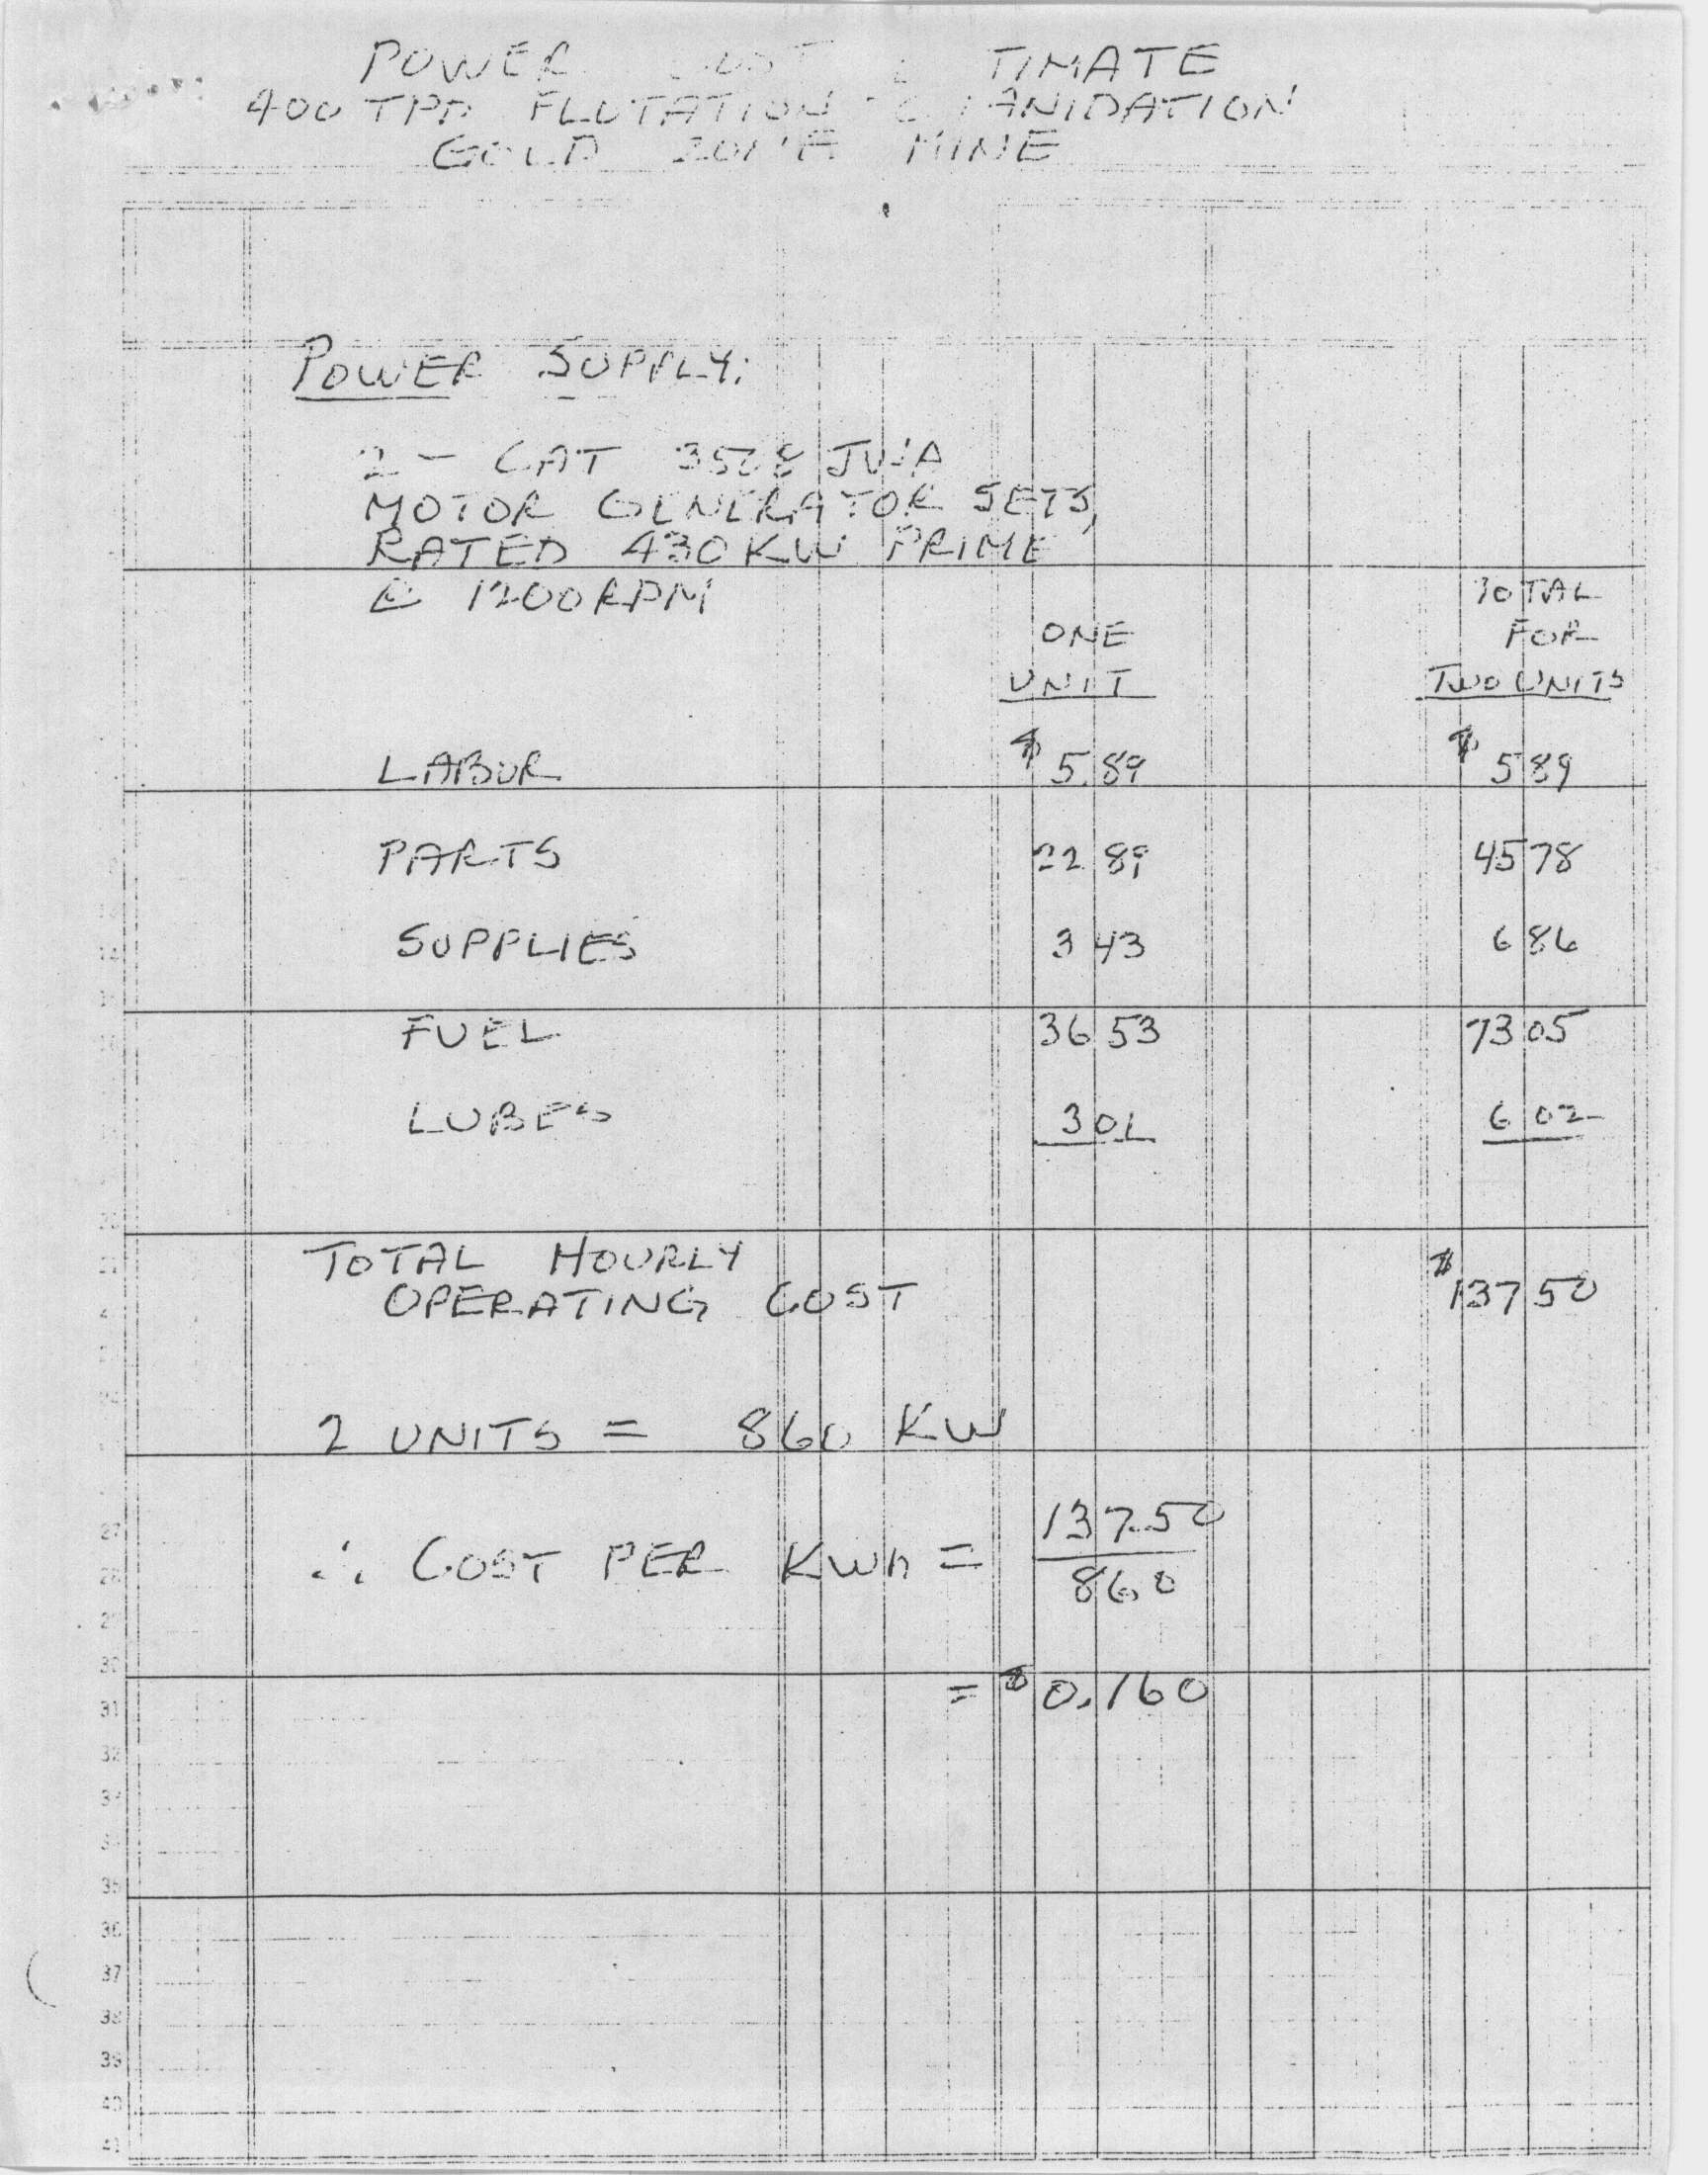 POWER COST TIMATE
400 TPD FLOTATION - CYANIDATION
GOLD ZONE MINE
POWER SUPPLY:
2 - CAT 3508
MOTOR GENERATOR SETS,
RATED 430 KW PRIME
@ 1200 RPM
ONE UNIT
TOTAL FOR TWO UNITS
LABOR $ 5.89 $ 5 89
PARTS 22 89 45 78
SUPPLIES 3 43 6 86
FUEL 36 53 73 05
LUBES 3 01 6 02
TOTAL HOURLY
OPERATING COST $ 137 50
2 UNITS = 860 KW
∴ COST PER KWh = 137.50
860
= $ 0.160
27
28
29
30
31
32
35
36
37
38
39
40
41